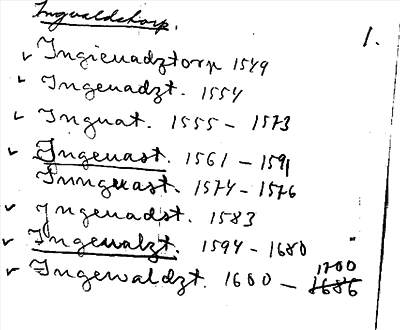 Ingvaldstorp. 1.
✓ Ingieuadztorp 1549
✓ Ingeuadzt. 1554
✓ Inguat. 1555 – 1573
✓ Ingeuast. 1561 – 1591
Inngeuast. 1574 – 1576
✓ Ingeuadst. 1583
✓ Ingewalzt. 1594 – 1680 "
✓ Ingewaldzt. 1600 – 1686 1700